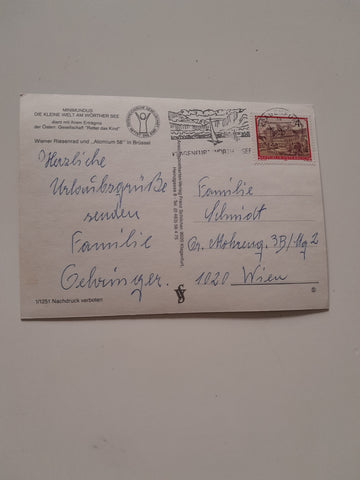 MINIMUNDUS
DIE KLEINE WELT AM WÖRTHER SEE
dient mit ihrem Erträgnis
der Österr. Gesellschaft "Rettet das Kind"
Wiener Riesenrad und „Atomium 58" in Brüssel
Herzliche
Urlaubsgrüße
senden
Familie
Oehringer.
1/1251 Nachdruck verboten
KLAGENFURT WÖRTHERSEE
4
REPUBLIK ÖSTERREICH
Familie
Schmidt
Gr. Mohreng. 3B/Hg 2
1020 Wien